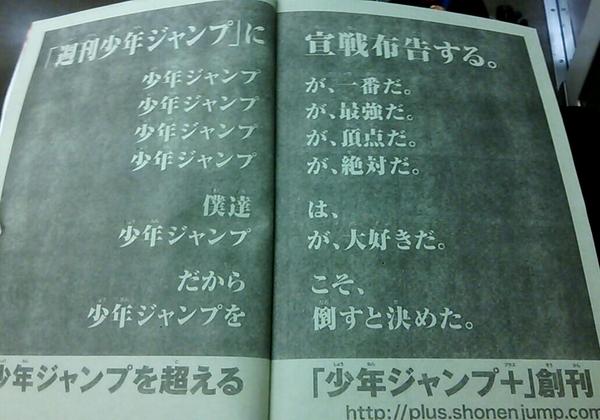 「週刊少年ジャンプ」に宣戦布告する。
少年ジャンプが、一番だ。
少年ジャンプが、最強だ。
少年ジャンプが、頂点だ。
少年ジャンプが、絶対だ。
僕達は、
少年ジャンプが、大好きだ。
だからこそ、
少年ジャンプを倒すと決めた。
少年ジャンプを超える「少年ジャンプ+」創刊
http://plus.shonenjump.com